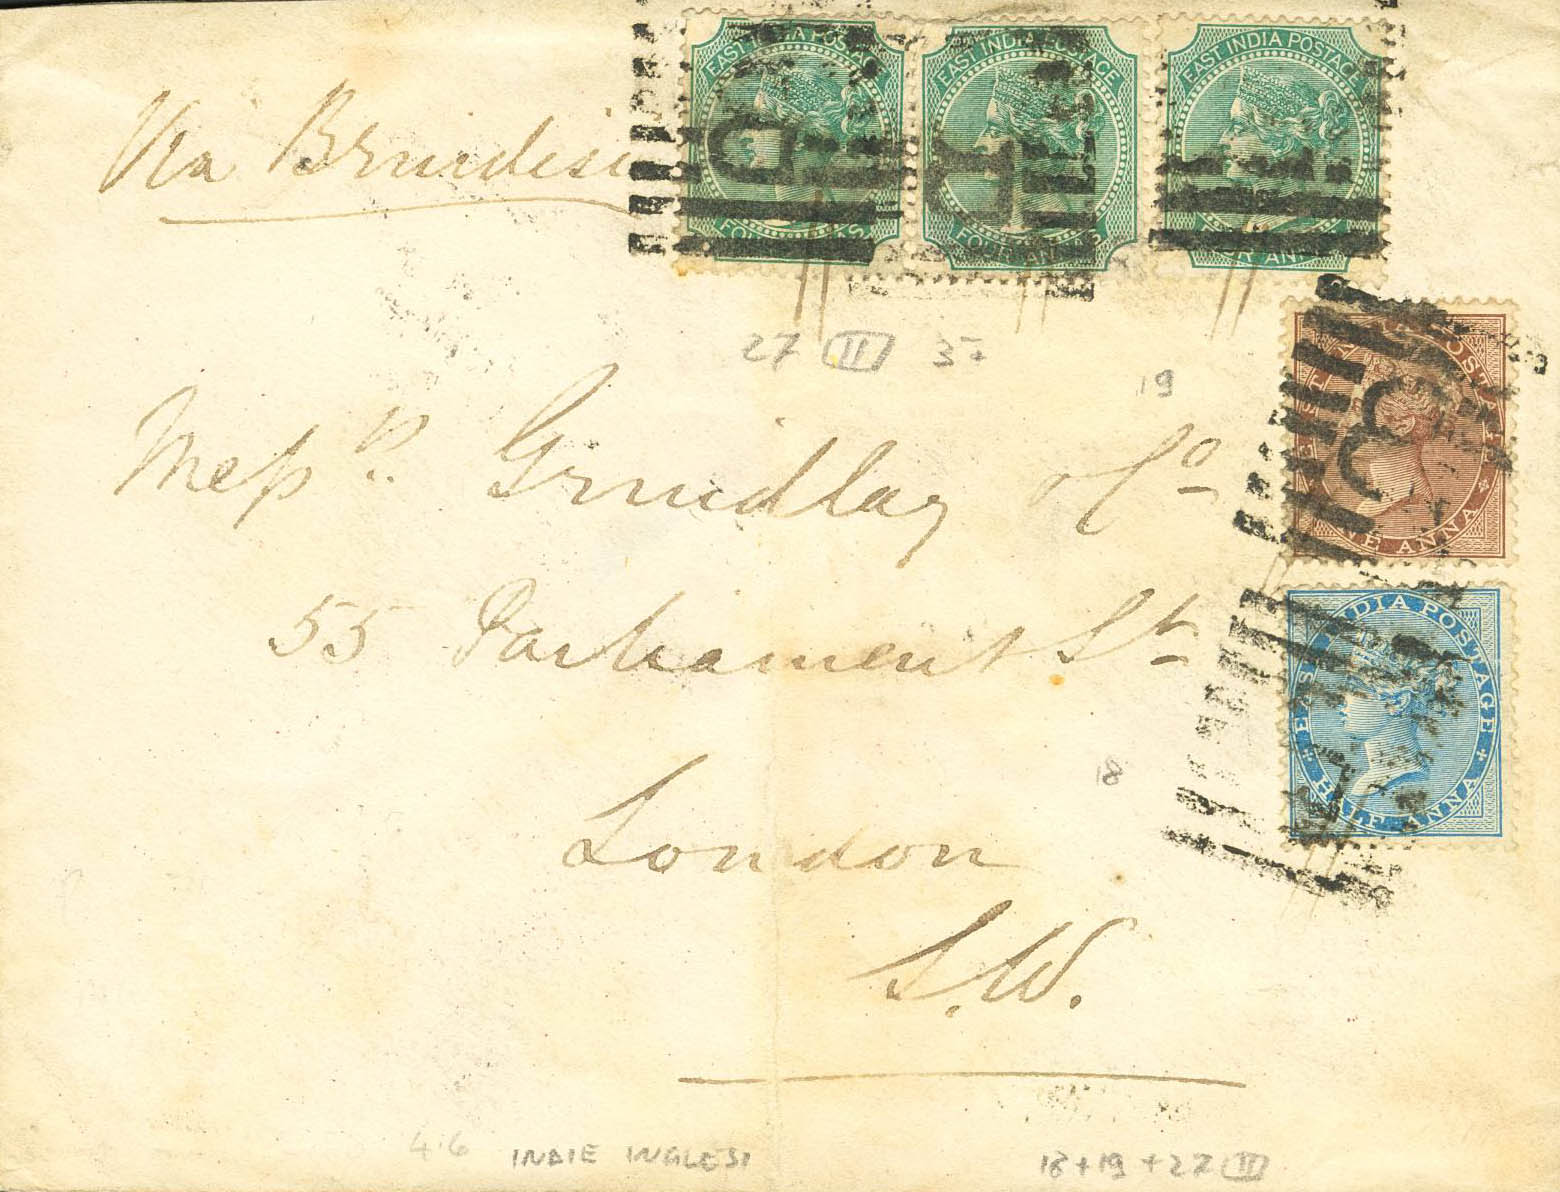 EAST INDIA POSTAGE EAST INDIA POSTAGE EAST INDIA POSTAGE
FOUR ANNAS FOUR ANNAS FOUR ANNAS
Via Brindisi
27 II 37
19
ONE ANNA
Messrs Grindlay & Co
55 Parliament St
EAST INDIA POSTAGE
HALF ANNA
18
London
S.W.
4.6 INDIE INGLESI 18+19+27 II